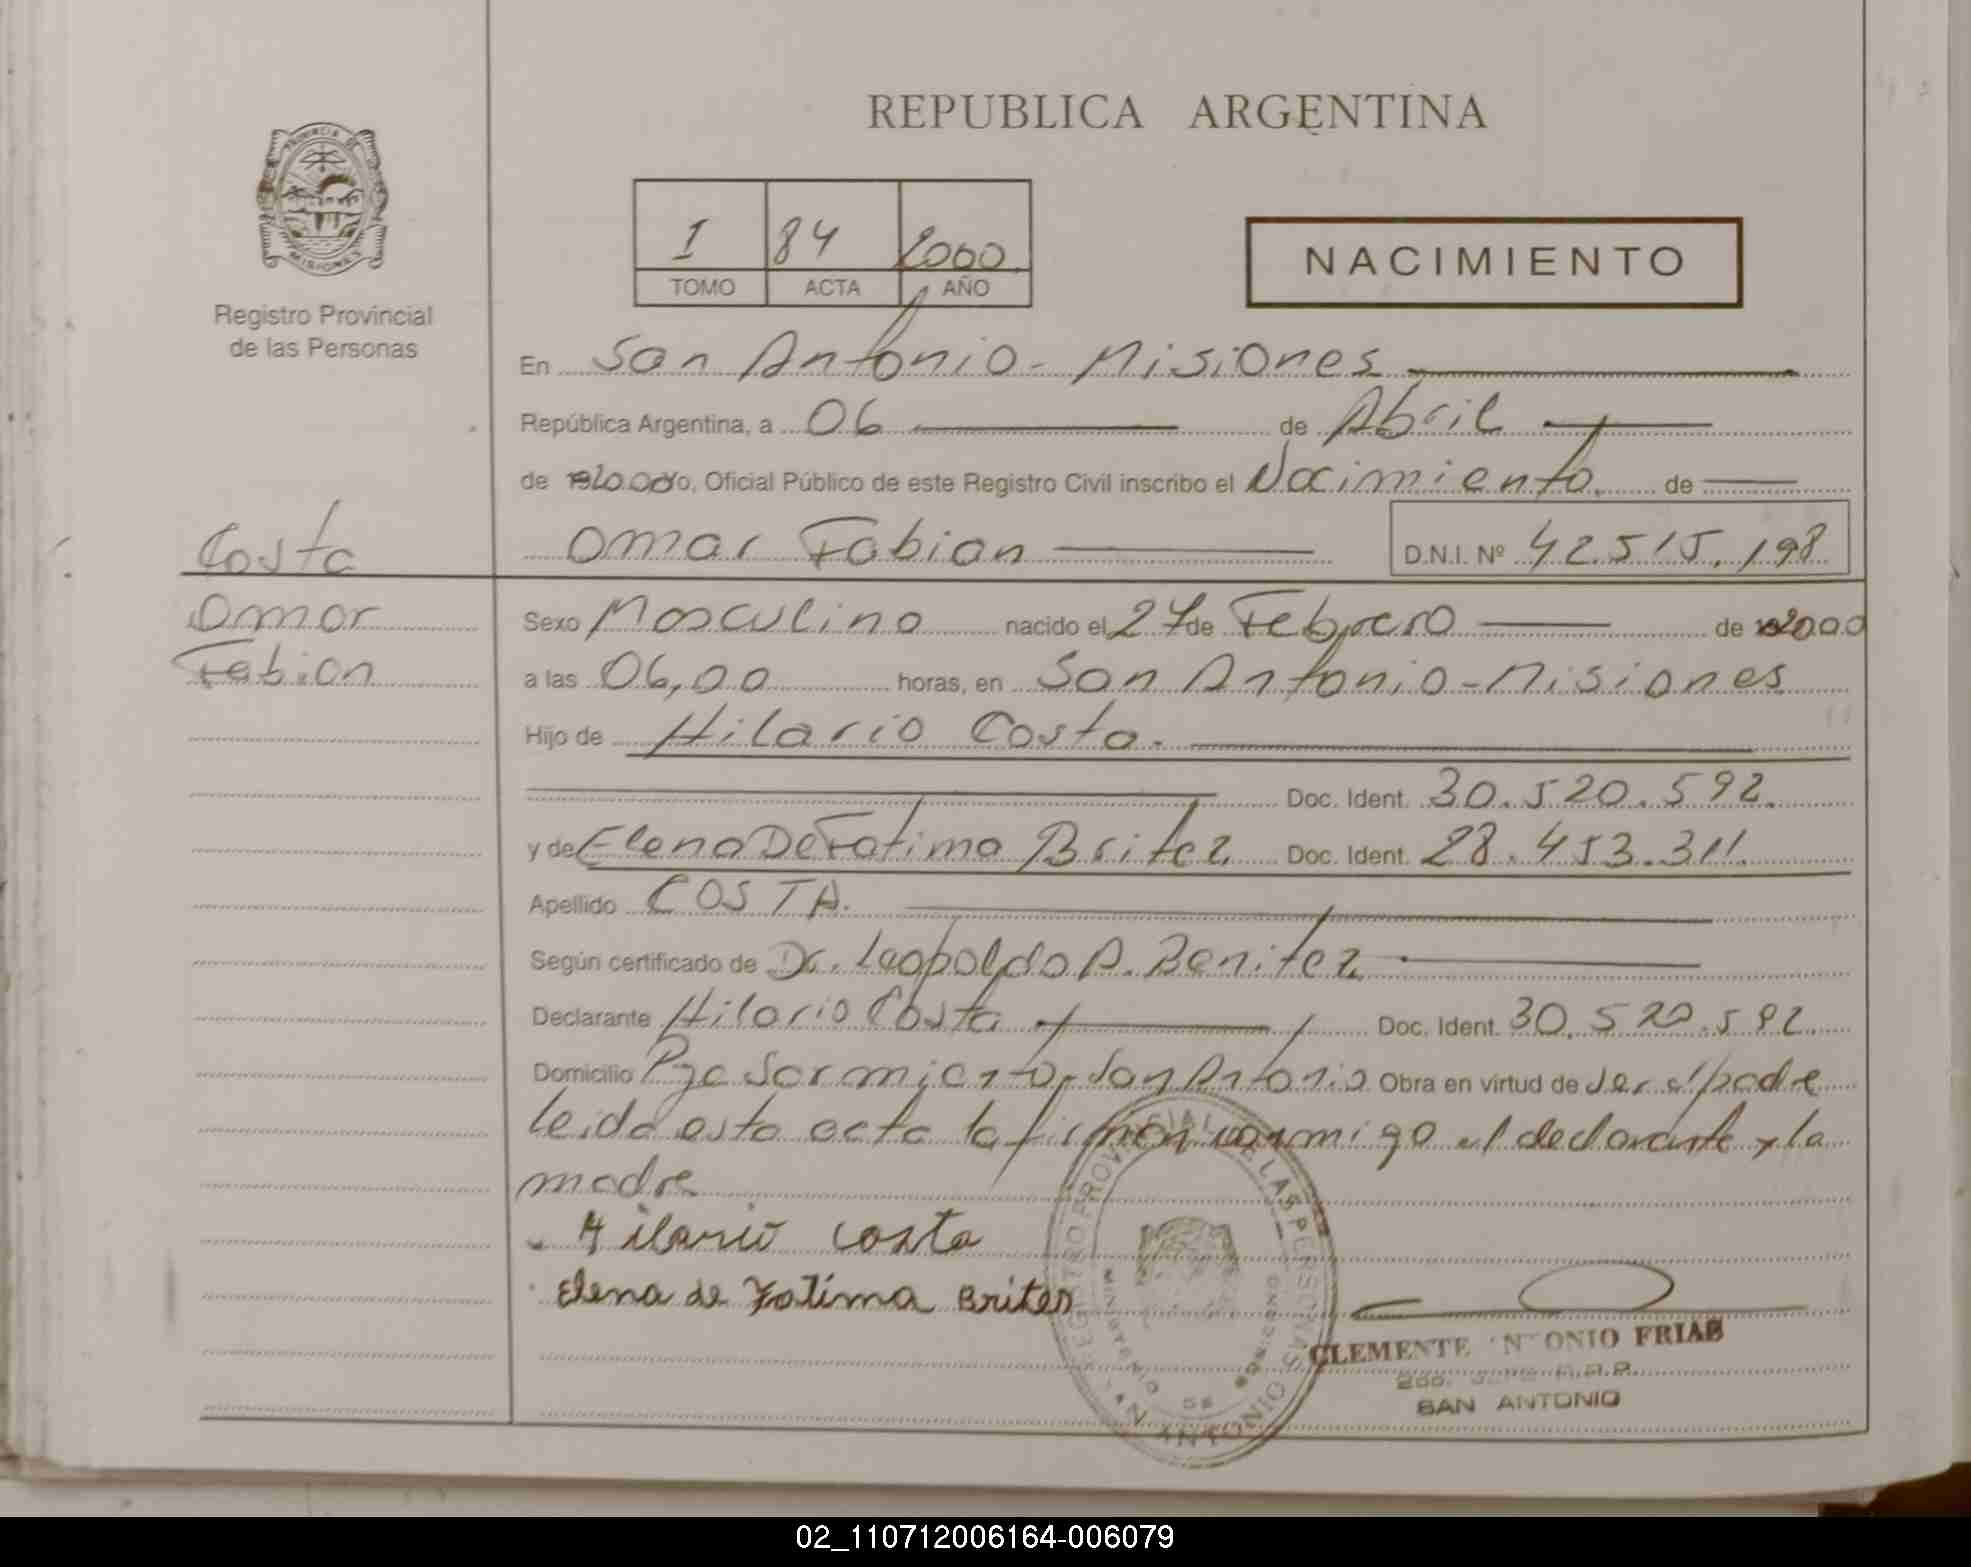 REPUBLICA ARGENTINA
PROVINCIA DE
MISIONES
Registro Provincial
de las Personas
I 84 2000
TOMO ACTA AÑO
NACIMIENTO
En San Antonio - Misiones
República Argentina, a 06 de Abril
de 2000 yo, Oficial Público de este Registro Civil inscribo el Nacimiento. de
Costa
Omar Fabian
Omar Fabian D.N.I. Nº 42.515.198
Sexo Masculino nacido el 27 de Febrero de 2000
a las 06,00 horas, en San Antonio - Misiones
Hijo de Hilario Costa.
Doc. Ident. 30.520.592.
y de Elena De Fatima Britez Doc. Ident. 28.453.311.
Apellido COSTA.
Según certificado de Dr. Leopoldo A. Benitez
Declarante Hilario Costa Doc. Ident. 30.520.592.
Domicilio Pje Sarmiento, San Antonio Obra en virtud de ser el padre
leida esta acta la firman conmigo el declarante y la
madre
Hilario Costa
Elena de Fatima Brites
REGISTRO PROVINCIAL DE LAS PERSONAS
MINISTERIO DE GOBIERNO
SAN ANTONIO
CLEMENTE ANTONIO FRIAS
SAN ANTONIO
02_110712006164-006079